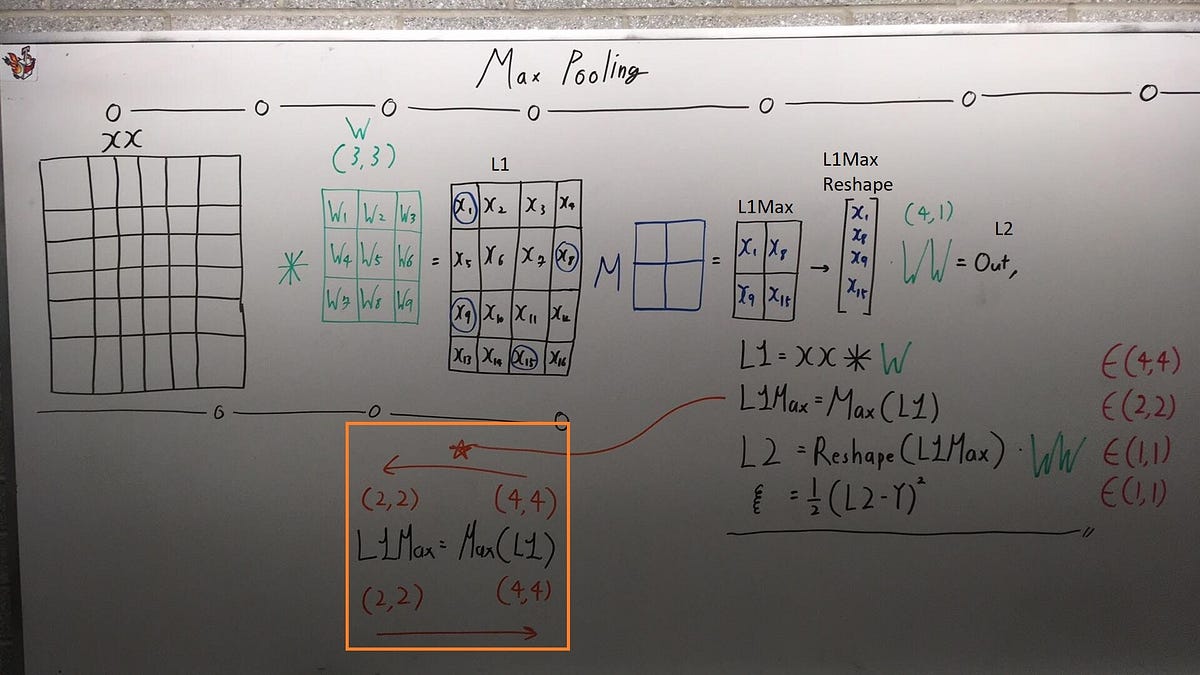 Max Pooling
XX
W
(3,3)
W₁ W₂ W₃
W₄ W₅ W₆
W₇ W₈ W₉
*
=
L1
X₁ X₂ X₃ X₄
X₅ X₆ X₇ X₈
X₉ X₁₀ X₁₁ X₁₂
X₁₃ X₁₄ X₁₅ X₁₆
M
=
L1Max
X₁ X₈
X₉ X₁₅
→
L1Max
Reshape
X₁
X₈
X₉
X₁₅
(4,1)
· WW = Out,
L2
L1 = XX * W ∈(4,4)
L1Max = Max(L1) ∈(2,2)
L2 = Reshape(L1Max) · WW ∈(1,1)
ξ = ½(L2-Y)² ∈(1,1)
(2,2) (4,4)
L1Max = Max(L1)
(2,2) (4,4)